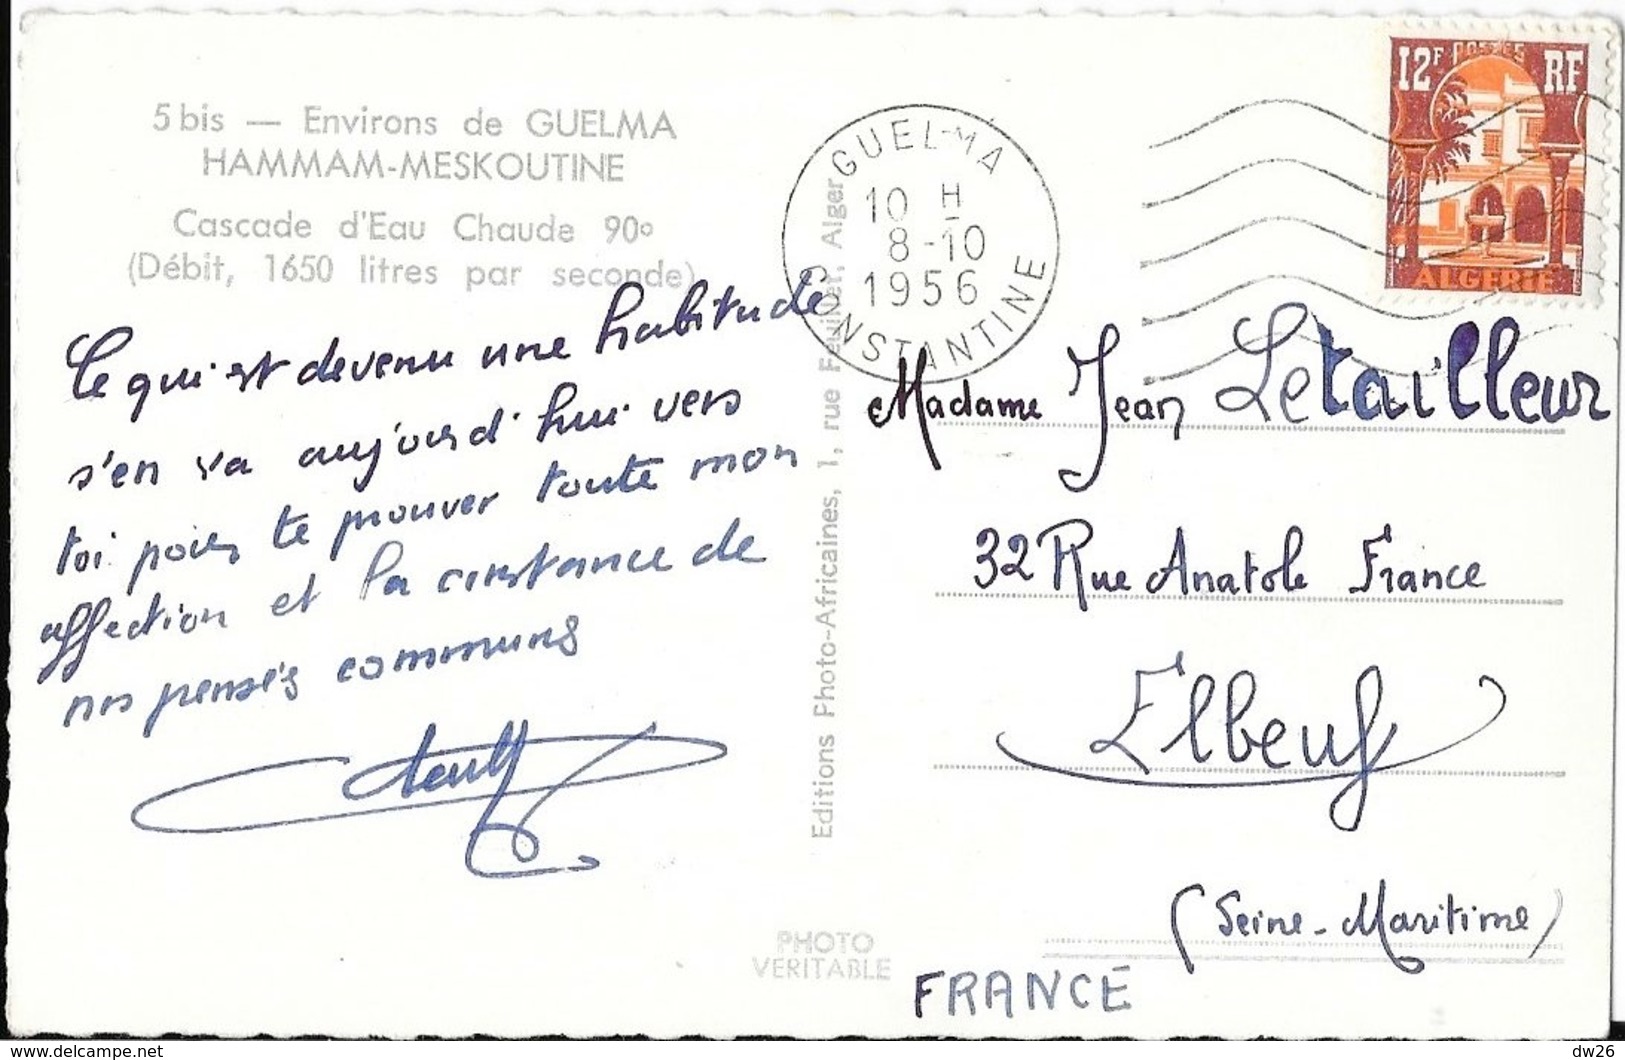 5 bis — Environs de GUELMA
HAMMAM-MESKOUTINE
Cascade d'Eau Chaude 90°
(Débit, 1650 litres par seconde)
Ce qui est devenu une habitude
s'en va aujourd'hui vers
toi pour te prouver toute mon
affection et la constance de
nos pensés communs
Editions Photo-Africaines, 1, rue Feuillet, Alger
PHOTO
VERITABLE
GUELMA
10 H
8-10
1956
CONSTANTINE
12F POSTES RF
ALGERIE
Madame Jean Letailleur
32 Rue Anatole France
Elbeuf
(Seine-Maritime)
FRANCE
delcampe.net
dw26